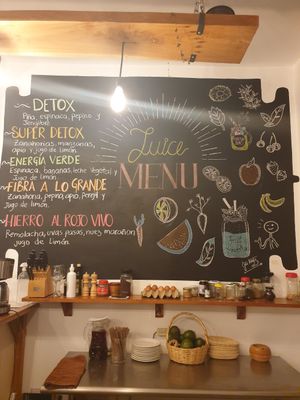 DETOX
Piña, espinaca, pepino y
Jengibre
SUPER DETOX
Zanahorias, manzanas,
apio y jugo de limón.
ENERGÍA VERDE
Espinaca, bananas, leche Vegetal y
Jugo de limón
FIBRA A LO GRANDE
Zanahoria, pepino, apio, Perejil y
Jugo de limón.
HIERRO AL ROJO VIVO
Remolacha, uvas pasas, nuez marañon
jugo de limón.
Juice
MENU